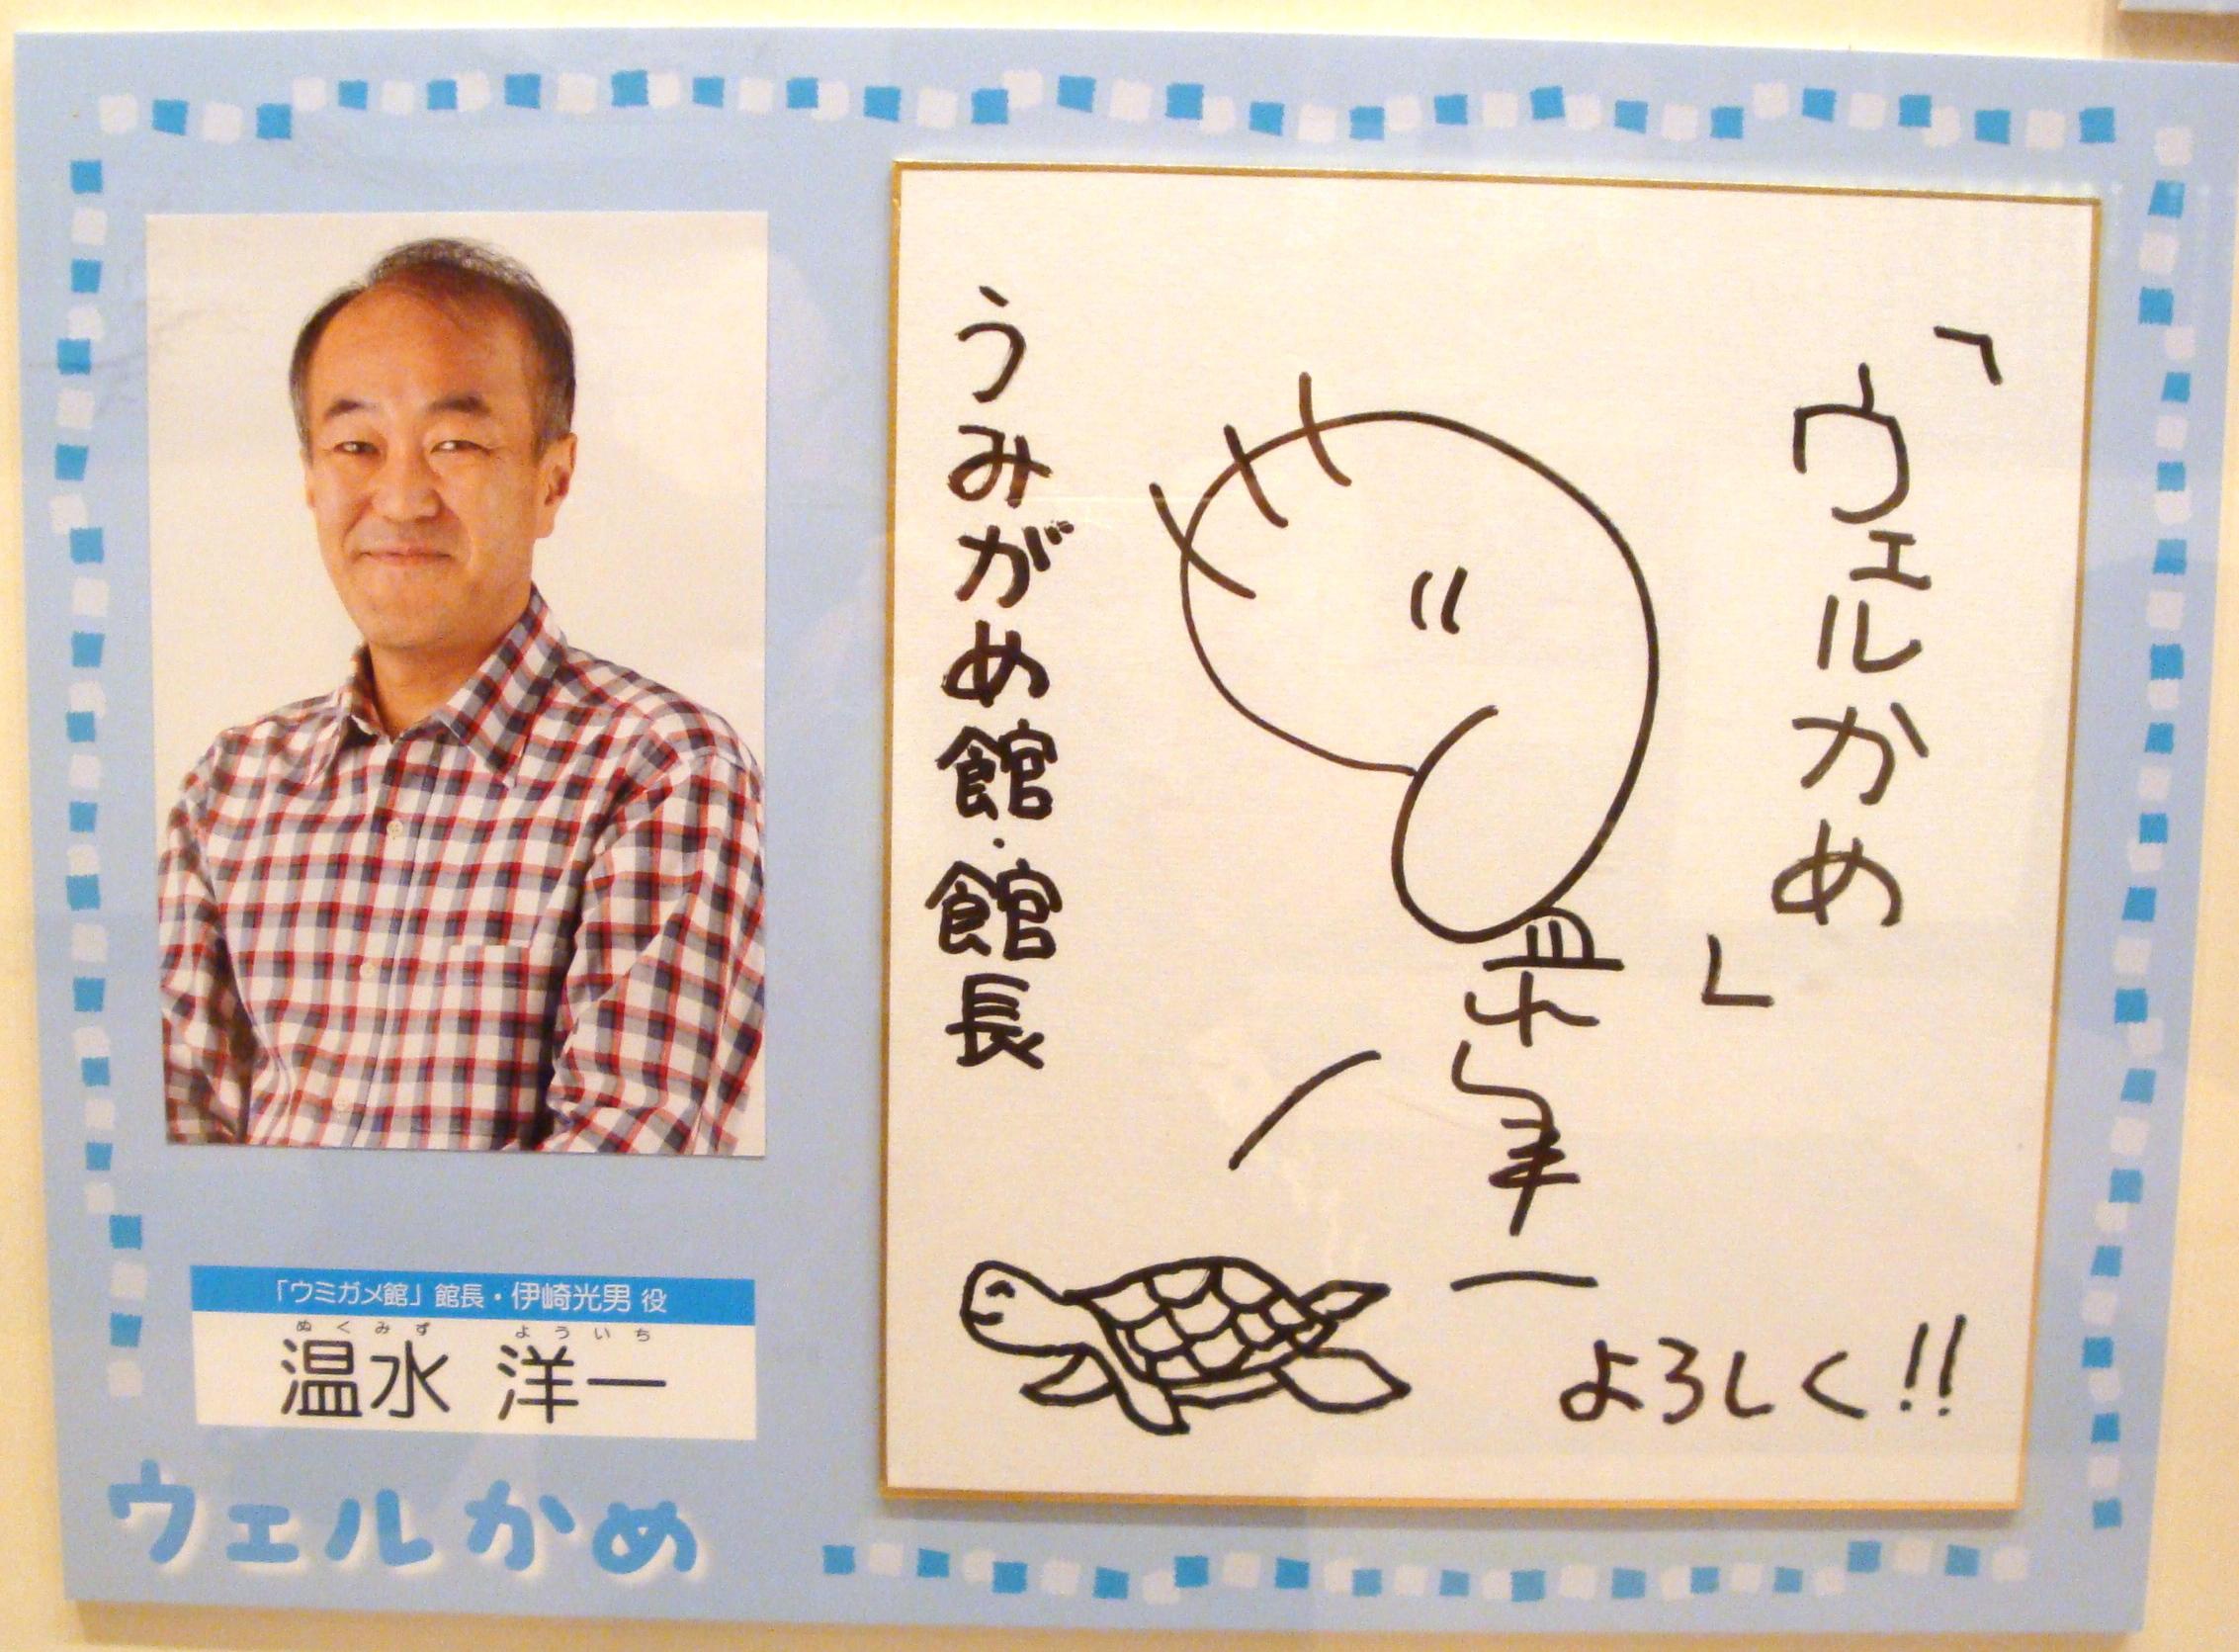 「ウミガメ館」館長・伊崎光男 役
ぬくみず よういち
温水 洋一
ウェルかめ
「ウェルかめ」
温水洋一
よろしく!!
うみがめ館・館長